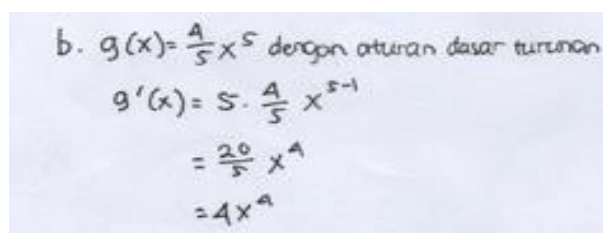 b. g(x) = 4/5 x⁵ dengan aturan dasar turunan
g'(x) = 5 · 4/5 x⁵⁻¹
= 20/5 x⁴
= 4x⁴